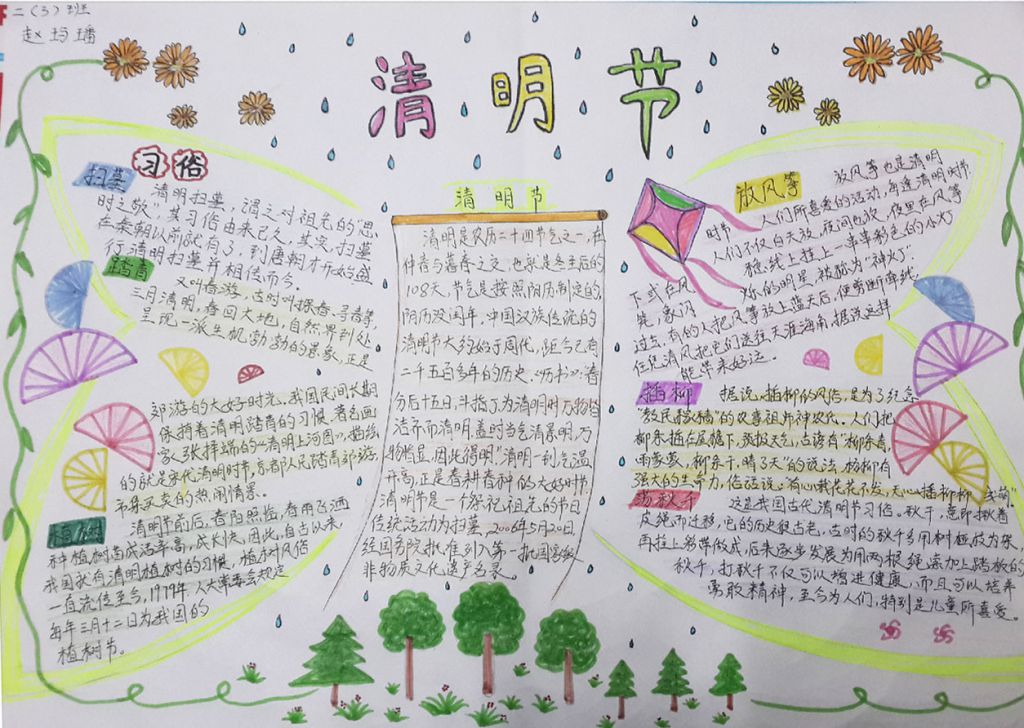 二(3)班
赵
清明节
习俗
扫墓
清明扫墓,谓之对祖先的“思
时之敬”,其习俗由来已久,其实,扫墓
在秦朝以前就有了,到唐朝才开始盛
行,清明扫墓并相传而今。
踏青
又叫春游,古时叫探春、寻春等,
三月清明,春回大地,自然界到处
呈现一派生机勃勃的景象,正是
郊游的大好时光。我国民间长期
保持着清明踏青的习惯,著名画
家张择端的“清明上河图”,描绘
的就是宋代清明时节,
市井买卖的热闹情景。
植树
清明节前后,春阳照临,春雨飞洒
种植树苗成活率高,成长快,因此,自古以来,
我国就有清明植树的习惯,植树风俗
一直流传至今,1979年,人大常委会规定
每年三月十二日为我国的
植树节。
清明节
清明是农历二十四节气之一,在
仲春与暮春之交,也就是冬至后的
108天,节气是按照阳历制定的,
阴历没闰年,中国汉族传统的
清明节大约始于周代,距今已有
二千五百多年的历史,《历书》:春
分后十五日,斗指丁,为清明时万物皆
洁齐而清明,盖时当气清景明,万
物皆显,因此得明”清明一到气温
升高,正是春耕春种的大好时节
清明节是一个祭祀祖先的节日
传统活动为扫墓,2006年5月20日,
经国务院批准列入第一批国家级
非物质文化遗产名录。
放风筝
放风筝也是清明
时节人们所喜爱的活动,每逢清明时节
人们不仅白天放,夜间也放,夜里在风筝
下或在风稳线上挂上一串串彩色的小灯
笼,象闪烁的明星,被称为“神火灯”
过去,有的人把风筝放上蓝天后,便剪断牵线,
任凭清风把它们送往天涯海角,据说这样
能带来好运。
插柳
据说,插柳的风俗,是为了纪念
“教民稼穑”的农事祖师神农氏。人们把
柳条插在屋檐下,预报天气,古谚有“柳条青,
雨蒙蒙,柳条干,晴了天”的说法,杨柳有
强大的生命力,俗话说:“有心栽花花不发,无心插柳柳成荫”。
荡秋千
这是我国古代清明节习俗,秋千,意即揪着
皮绳而迁移,它的历史很古老,古时的秋千多用树桠枝为架,
再拴上彩带做成,后来逐步发展为用两根绳索加上踏板的
秋千,打秋千不仅可以增进健康,而且可以培养
勇敢精神,至今为人们,特别是儿童所喜爱。